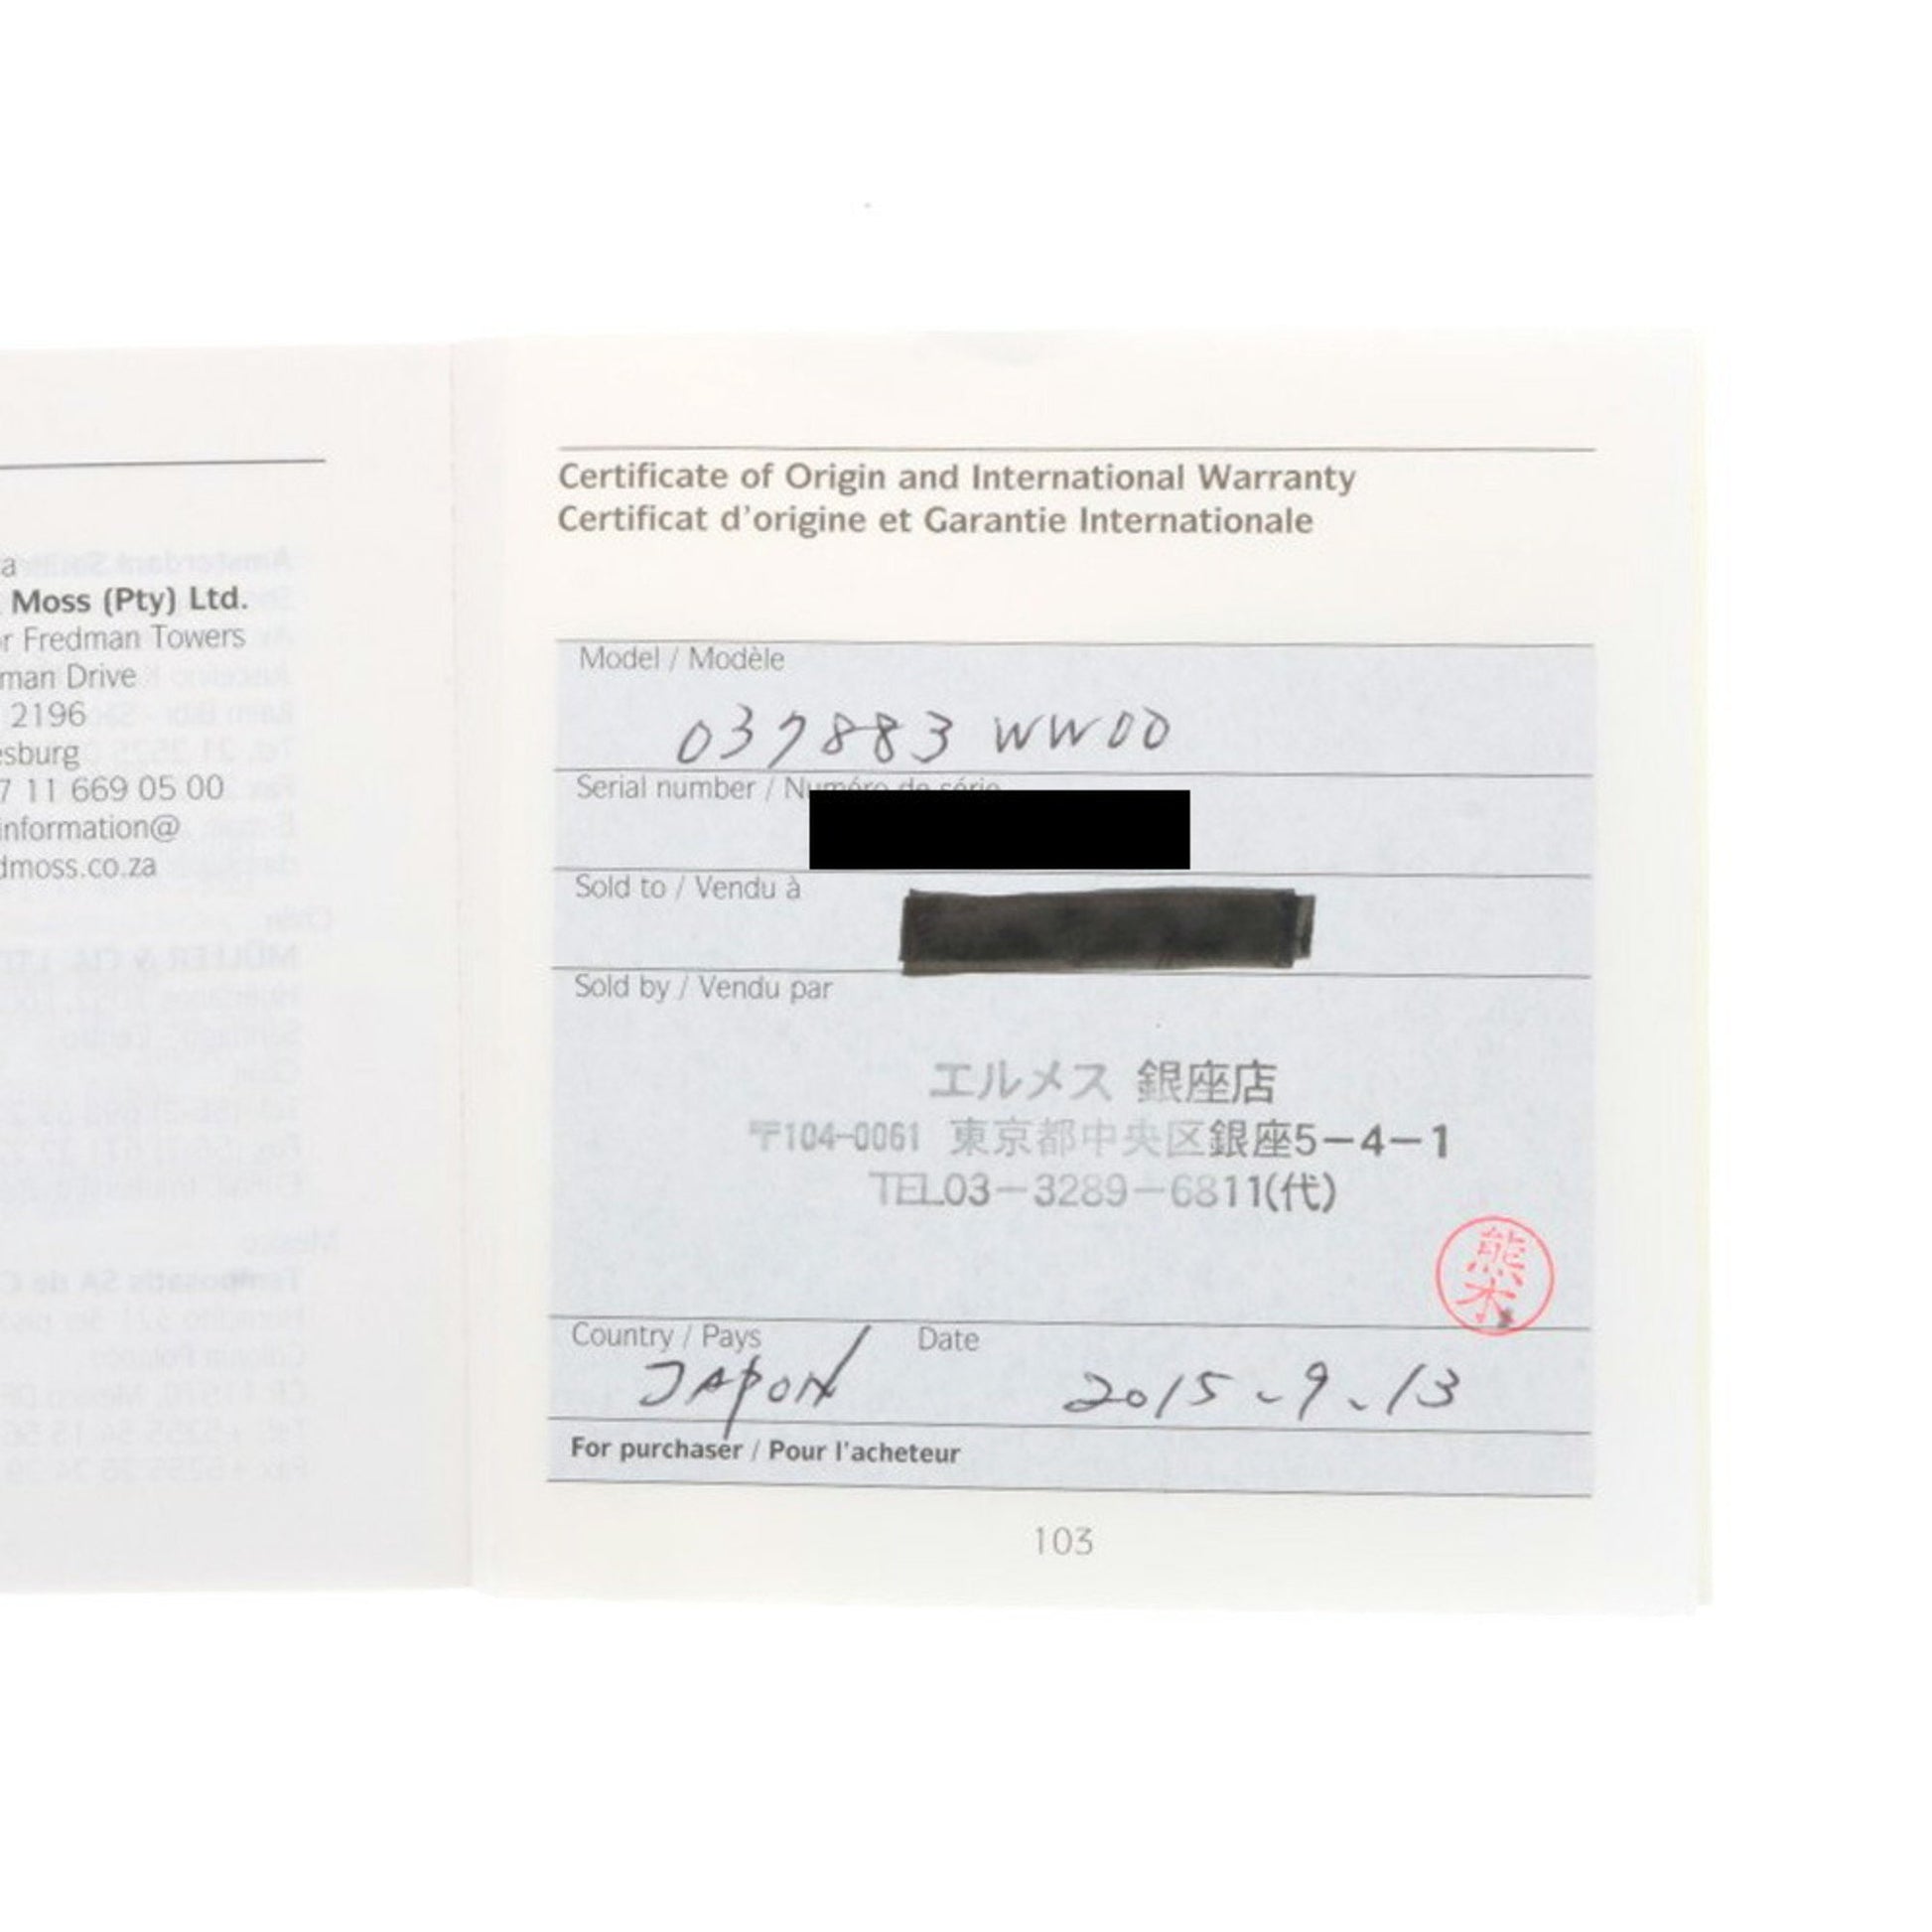 a
Moss (Pty) Ltd.
r Fredman Towers
man Drive
2196
esburg
7 11 669 05 00
information@
dmoss.co.za
Certificate of Origin and International Warranty
Certificat d'origine et Garantie Internationale
Model / Modèle
037883 WW00
Serial number / Numéro de série
Sold to / Vendu à
Sold by / Vendu par
エルメス 銀座店
〒104-0061 東京都中央区銀座5-4-1
TEL03-3289-6811(代)
熊木
Country / Pays Date
JAPON 2015.9.13
For purchaser / Pour l'acheteur
103